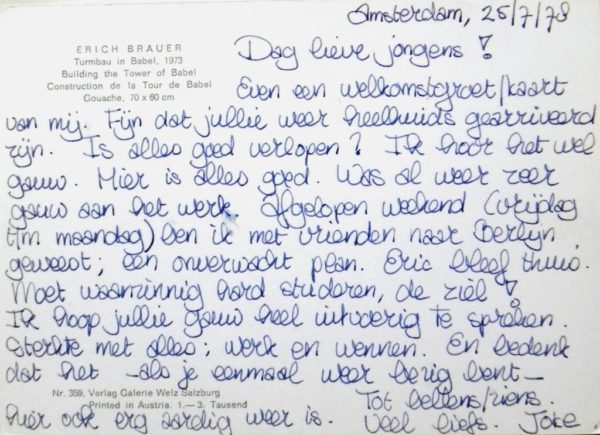 Amsterdam, 25/7/78
ERICH BRAUER
Turmbau in Babel, 1973
Building the Tower of Babel
Construction de la Tour de Babel
Gouache, 70 x 60 cm
Dag lieve jongens!
Even een welkomstgroet/kaart
van mij. Fijn dat jullie weer heelhuids gearriveerd
zijn. Is alles goed verlopen? Ik hoor het wel
gauw. Hier is alles goed. Was al weer zeer
gauw aan het werk. Afgelopen weekend (vrijdag
t/m maandag) ben ik met vrienden naar Berlijn
geweest; een onverwacht plan. Eric bleef thuis.
Moet waanzinnig hard studeren, de ziel!
Ik hoop jullie gauw heel uitvoerig te spreken.
Sterkte met alles; werk en wennen. En bedenk
dat het -als je eenmaal weer bezig bent-
Nr. 359, Verlag Galerie Welz Salzburg
Printed in Austria. 1.— 3. Tausend
hier ook erg aardig weer is.
Tot bellens/ziens.
Veel liefs. Joke